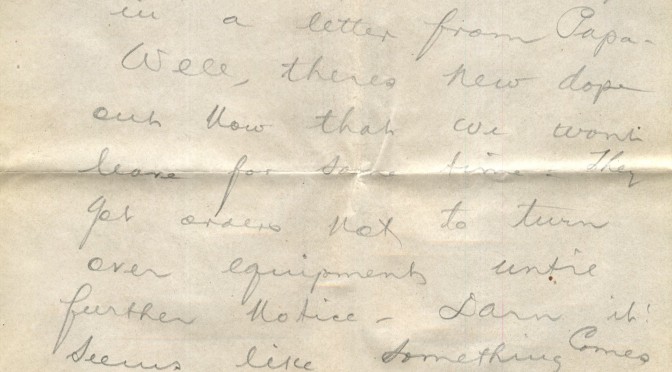 in a letter from Papa-
Well, theres new dope
out now that we wont
leave for some time. They
got orders not to turn
over equipments until
further notice - Darn it!
Seems like something comes